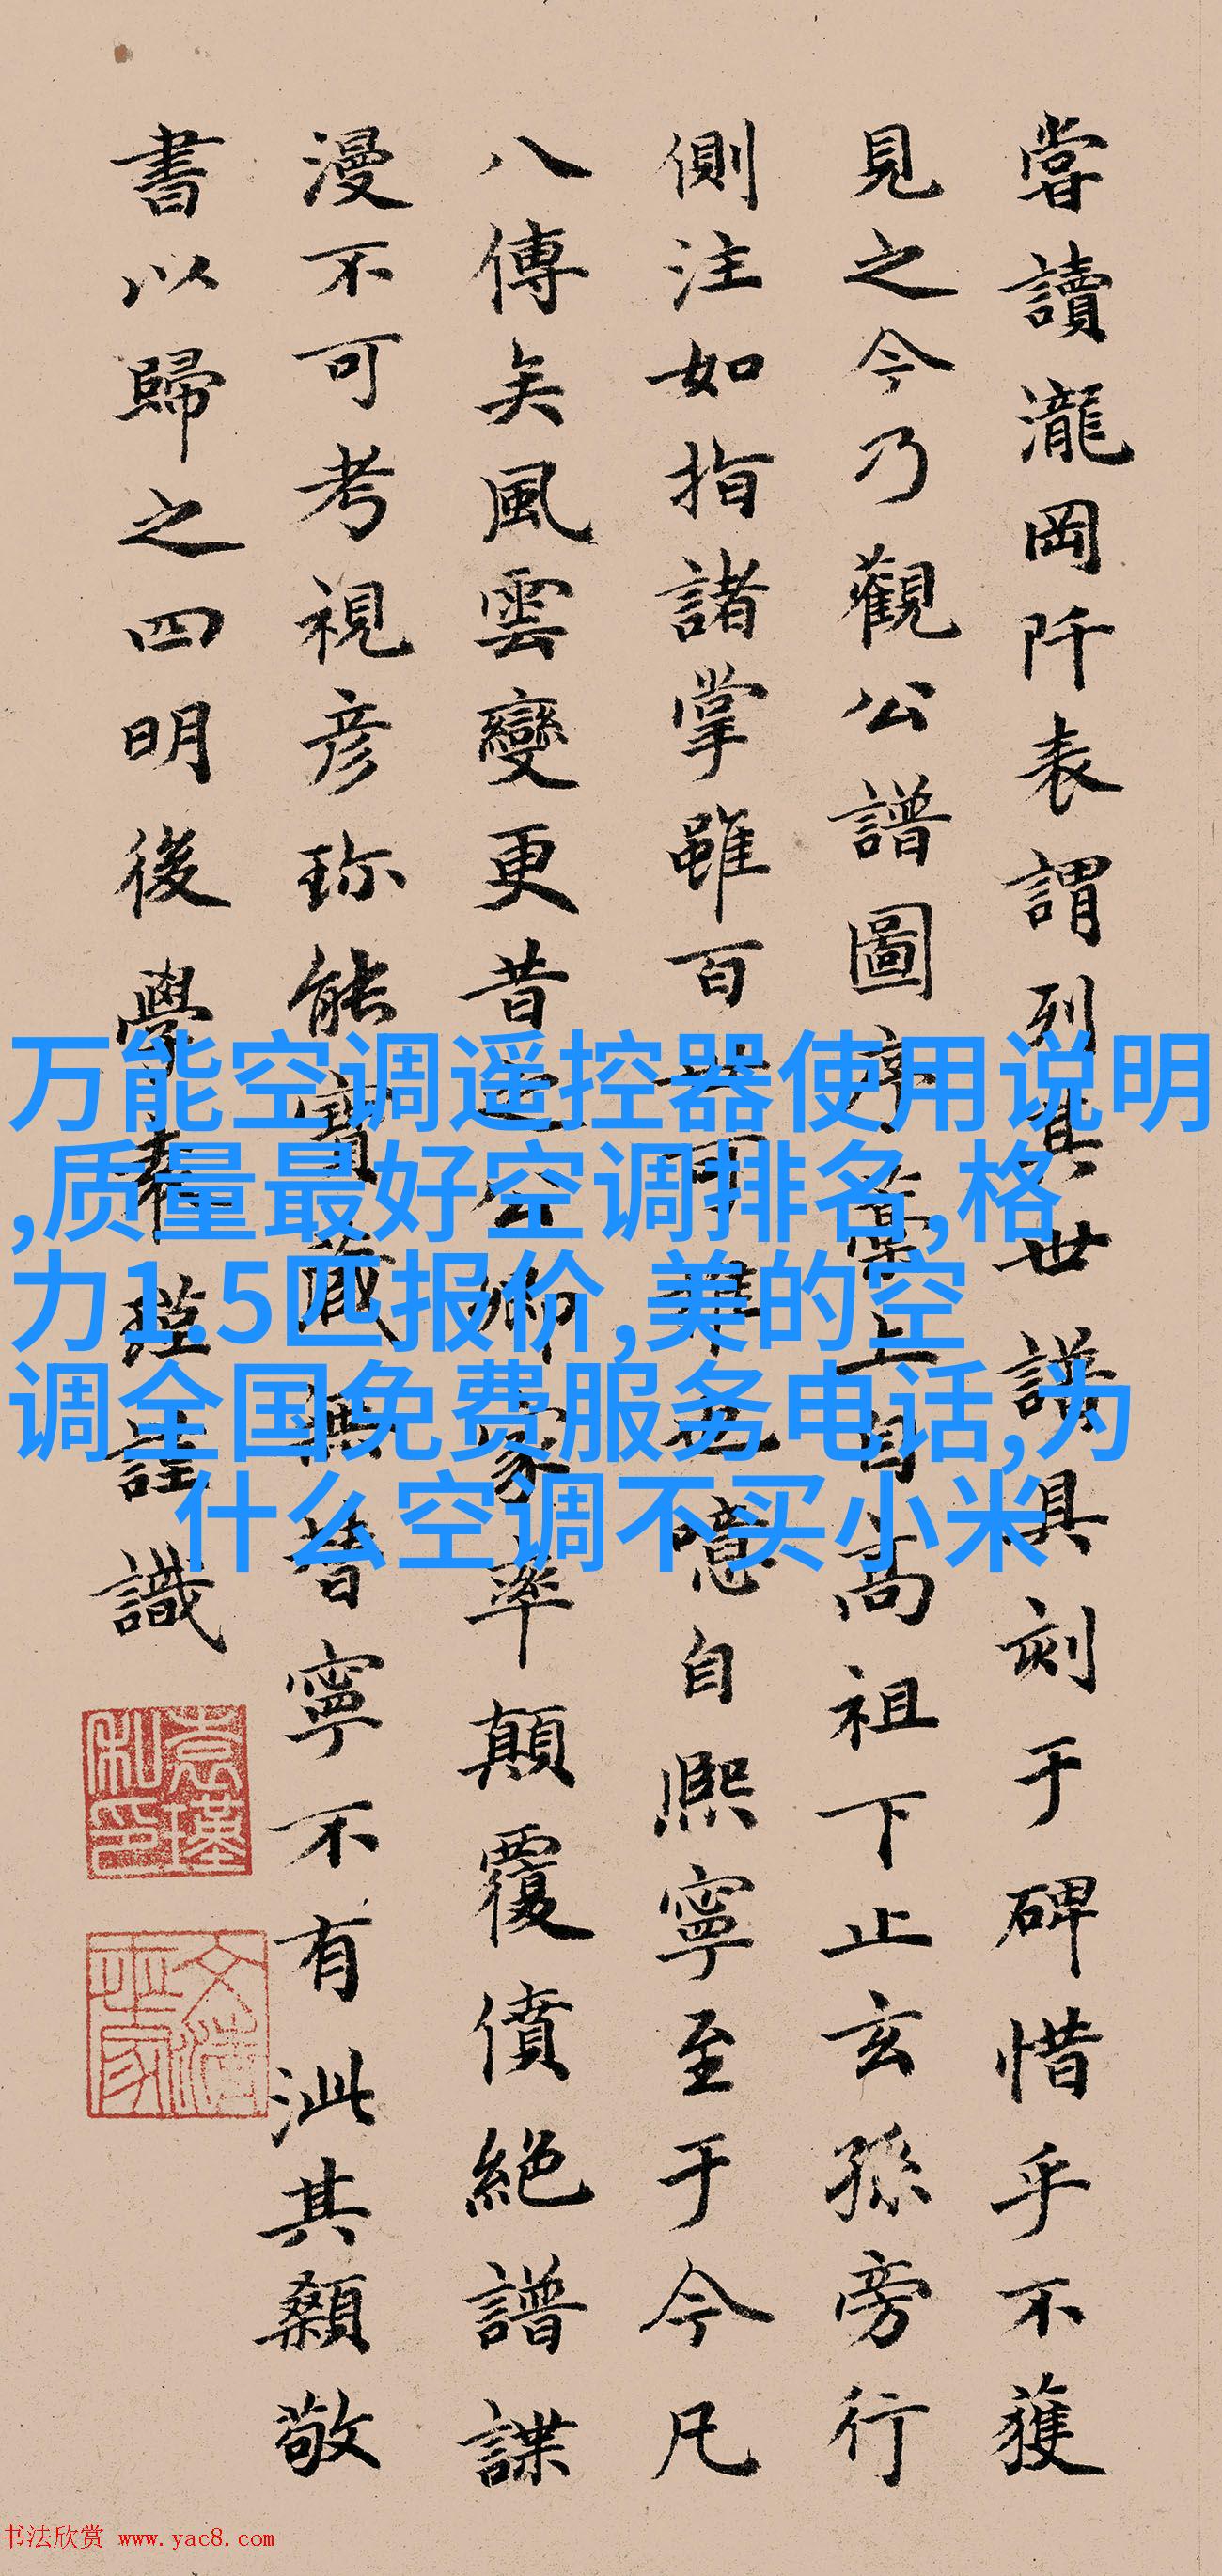 嘗讀瀧岡阡表謂列其世譜具刻于碑惜乎不獲
見之今乃觀公譜圖序上自高祖下止玄孫旁行
側注如指諸掌雖百世可準也噫自熙寧至于今凡
八傳矣風雲變更昔之公卿家率顛覆僨絕譜諜
漫不可考視彦珎能寶藏無替寧不有泚其顙敬
書以歸之四明後學袁瑾識
袁瑾私印
文清世家
万能空调遥控器使用说明
,质量最好空调排名,格
力1.5匹报价,美的空
调全国免费服务电话,为
什么空调不买小米
书法欣赏 www.yac8.com